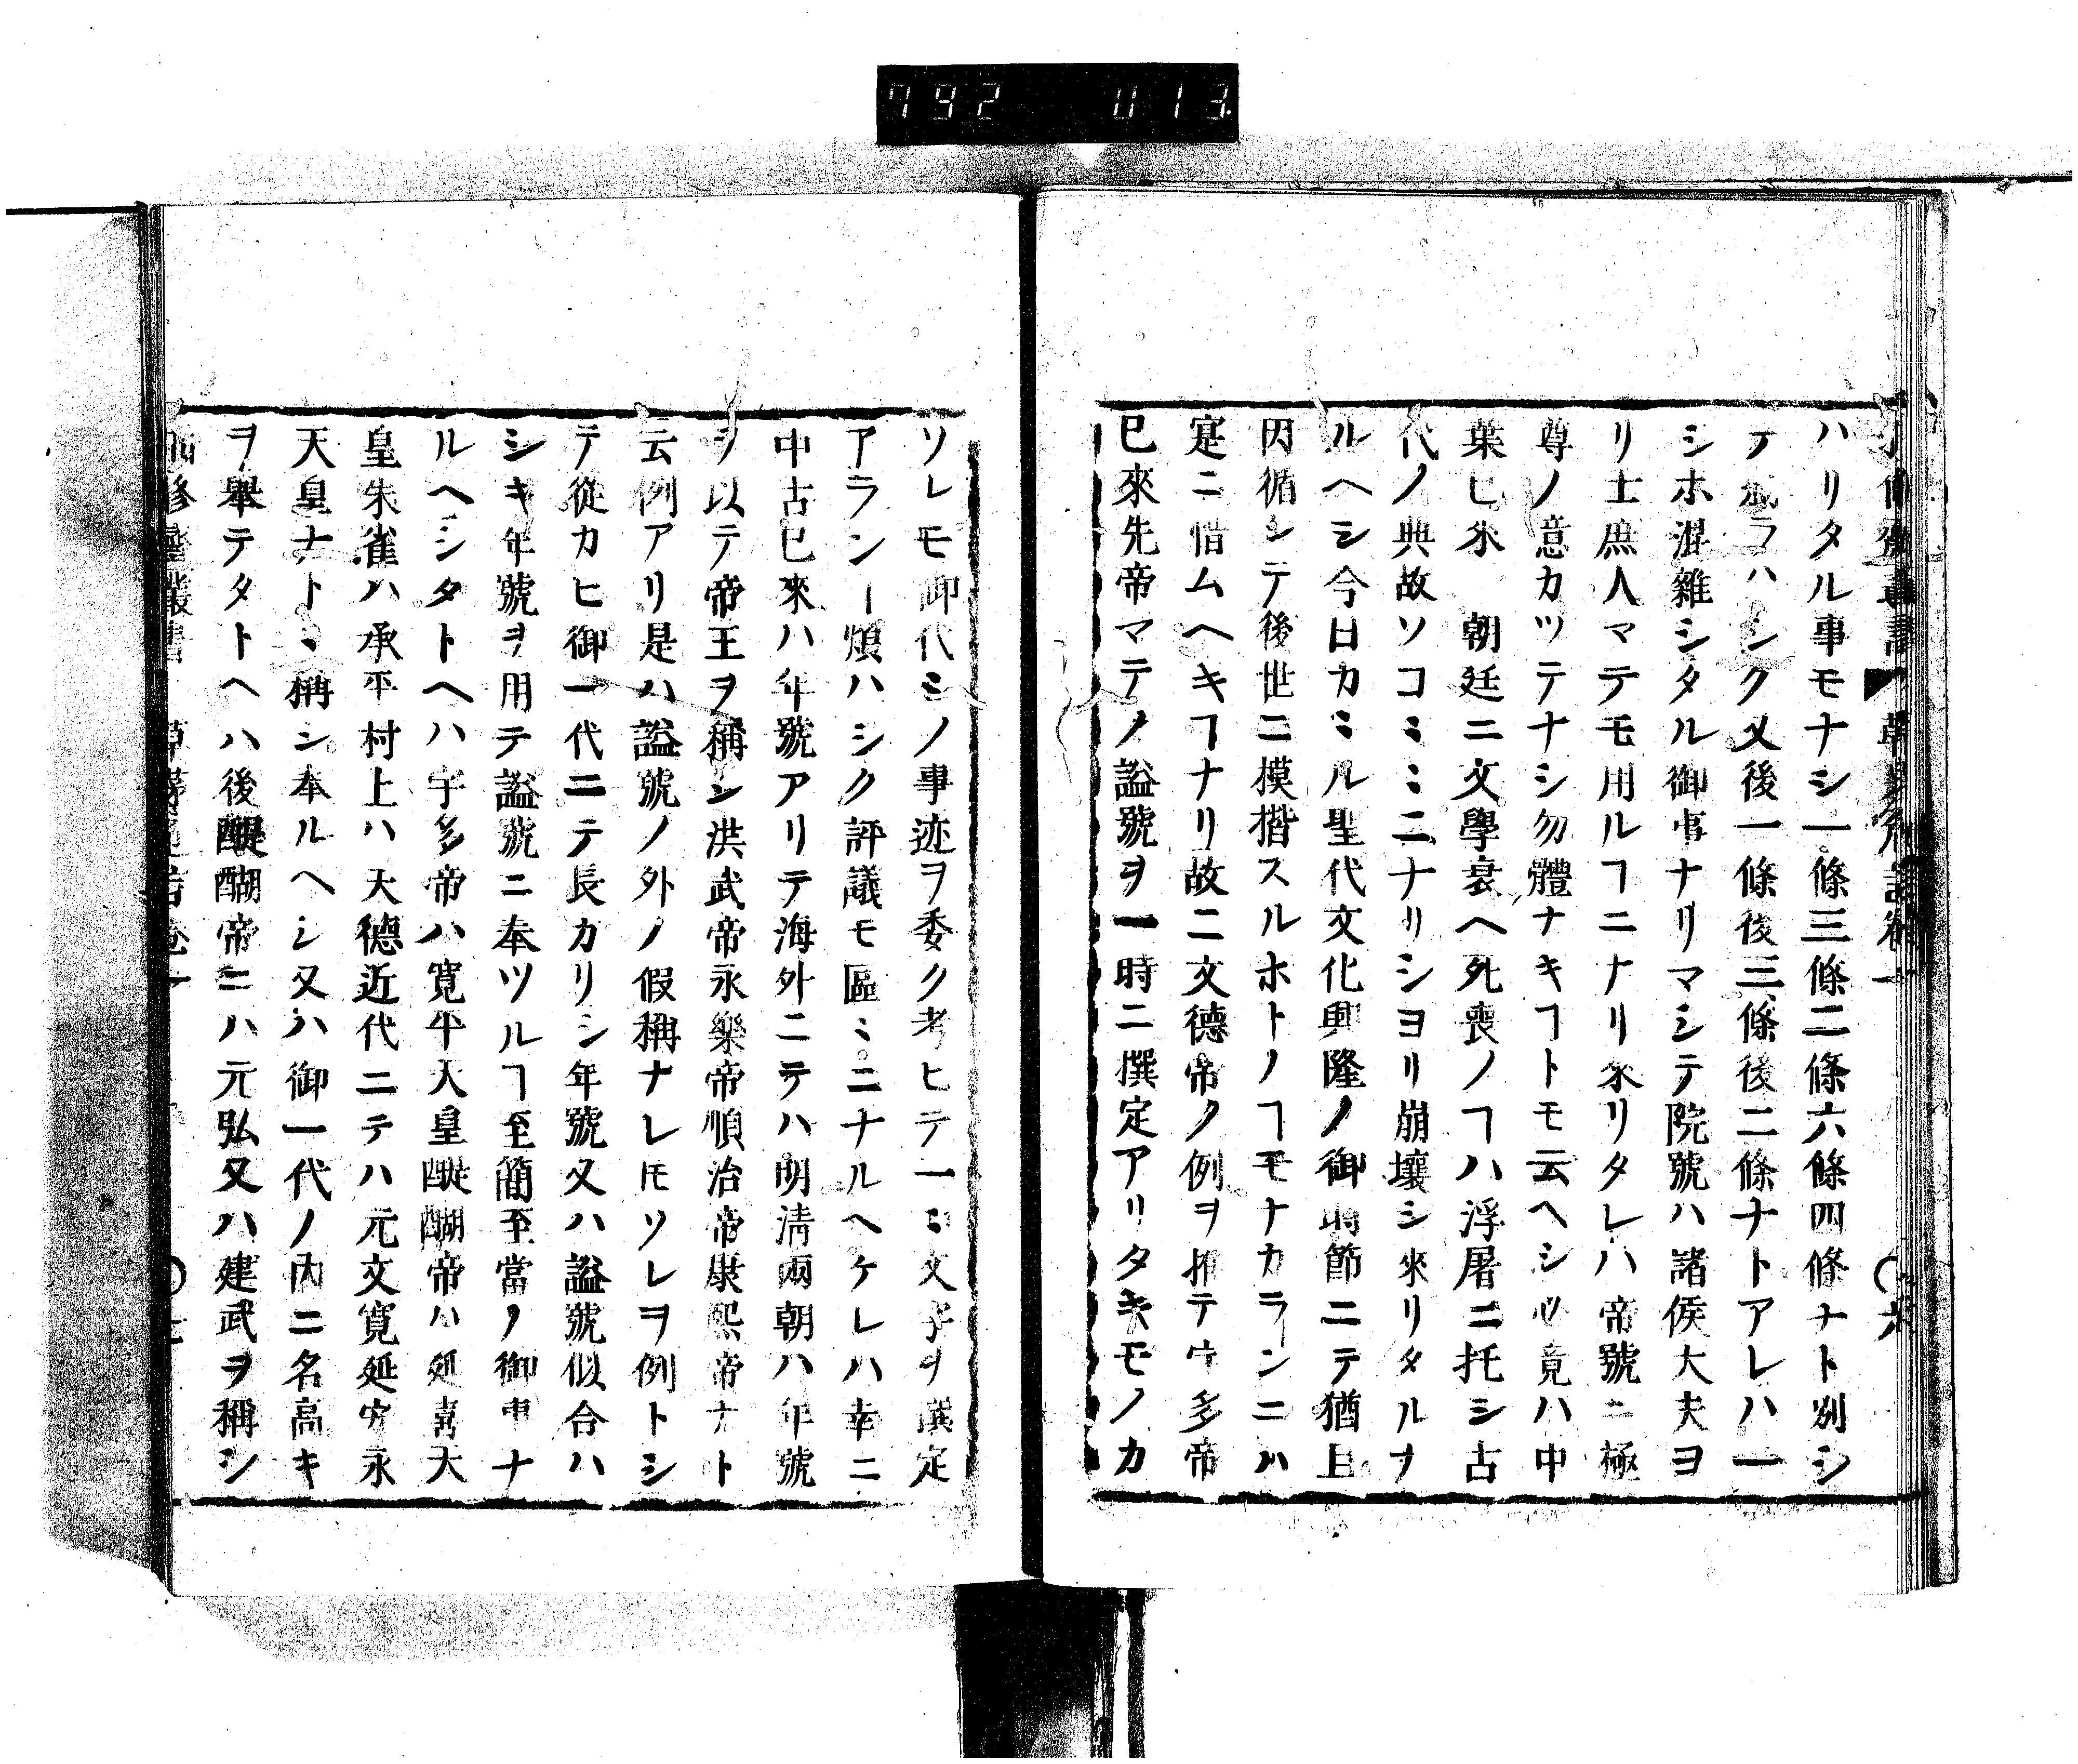 792 013
ハリタル事モナシ一條三條二條六條四條ナト別シ
ラハシク又後一條後三條後二條ナトアレハ一
シホ混雜シタル御事ナリマシテ院號ハ諸侯大夫ヨ
リ士庶人マテモ用ルヿニナリ來リタレハ帝號ニ極
尊ノ意カツテナシ勿體ナキヿトモ云ヘシ必竟ハ中
葉已來 朝廷ニ文學衰ヘ死喪ノヿハ浮屠ニ托シ古
代ノ典故ソコミミニナリシヨリ崩壞シ來リタルヲ
ルヘシ今日カミル聖代文化興隆ノ御時節ニテ猶且
因循シテ後世ニ摸楷スルホトノヿモナカランニハ
寔ニ惜ムヘキヿナリ故ニ文德帝ノ例ヲ推テ宇多帝
已來先帝マテノ謚號ヲ一時ニ撰定アリタキモノカ
ソレモ御代ミノ事迹ヲ委ク考ヒテ一ミ文字ヲ撰定
アランヿ煩ハシク評議モ區ミニナルヘケレハ幸ニ
中古已來ハ年號アリテ海外ニテハ明淸兩朝ハ年號
ヲ以テ帝王ヲ稱シ洪武帝永樂帝順治帝康熙帝ナト
云例アリ是ハ謚號ノ外ノ假稱ナレ𪜈ソレヲ例トシ
テ從カヒ御一代ニテ長カリシ年號又ハ謚號似合ハ
シキ年號ヲ用テ謚號ニ奉ツルヿ至簡至當ノ御事ナ
ルヘシタトヘハ宇多帝ハ寛平天皇醍醐帝ハ延喜天
皇朱雀ハ承平村上ハ天德近代ニテハ元文寛延安永
天皇ナトヽ稱シ奉ルヘシ又ハ御一代ノ內ニ名高キ
ヲ擧テタトヘハ後醍醐帝ニハ元弘又ハ建武ヲ稱シ